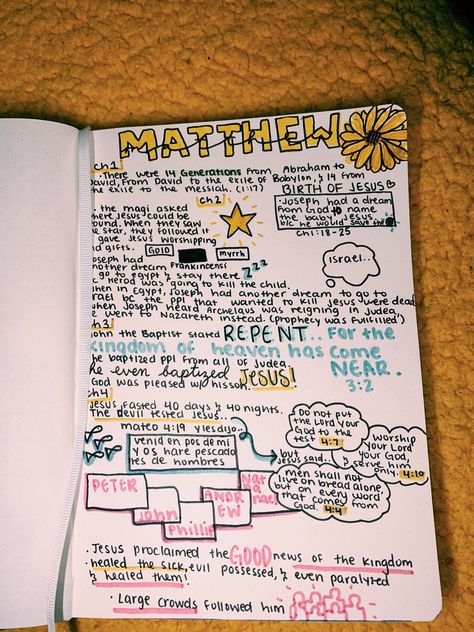 MATTHEW
ch1
There were 14 Generations from Abraham to
David, From David to the exile of Babylon, & 14 from
the exile to the messiah. (1:17)
BIRTH OF JESUS
Joseph had a dream
from God to name
the baby Jesus
b/c he would save the
Ch1:18-25
ch2
the magi asked
where Jesus could be
found. When they saw
the star, they followed it
& gave Jesus worshipping
and gifts. Gold
Frankincense
myrrh
Israel...
Joseph had
another dream
to go to egypt & stay there zzz
b/c Herod was going to kill the child.
When in Egypt, Joseph had another dream to go to
Israel bc the ppl that wanted to kill Jesus were dead
when Joseph heard Archelaus was reigning in Judea,
he went to Nazareth instead. (prophecy was fulfilled)
ch3
John the Baptist stated REPENT.. For the
kingdom of heaven has come
NEAR.
3:2
he baptized ppl from all of Judea
he even baptized JESUS!
God was pleased w/ his son.
ch4
Jesus fasted 40 days & 40 nights.
The devil tested Jesus..
but
Jesus said..
Do not put
the Lord your
God to the
test 4:7
worship
your Lord
your God,
& serve him
only. 4:10
men shall not
live on bread alone,
but on every word
that comes from
God. 4:4
mateo 4:19 yles dijo..
venid en pos de mi
y os haré pescado
res de hombres
PETER
John
Phillip
ANDREW
Nathaniel
Jesus proclaimed the GOOD news of the kingdom
healed the sick, evil possessed, & even paralyzed
& healed them!
Large crowds followed him